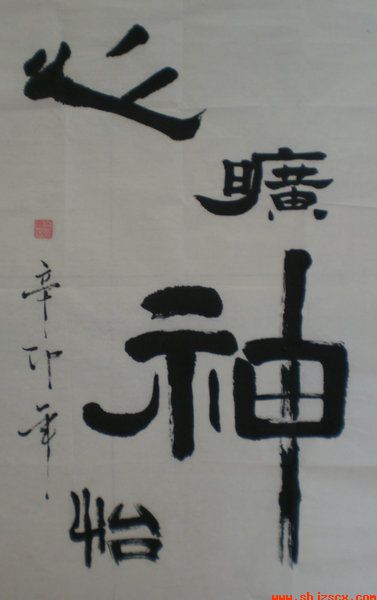 心
曠
神
怡
辛卯年
www.shjzscx.com